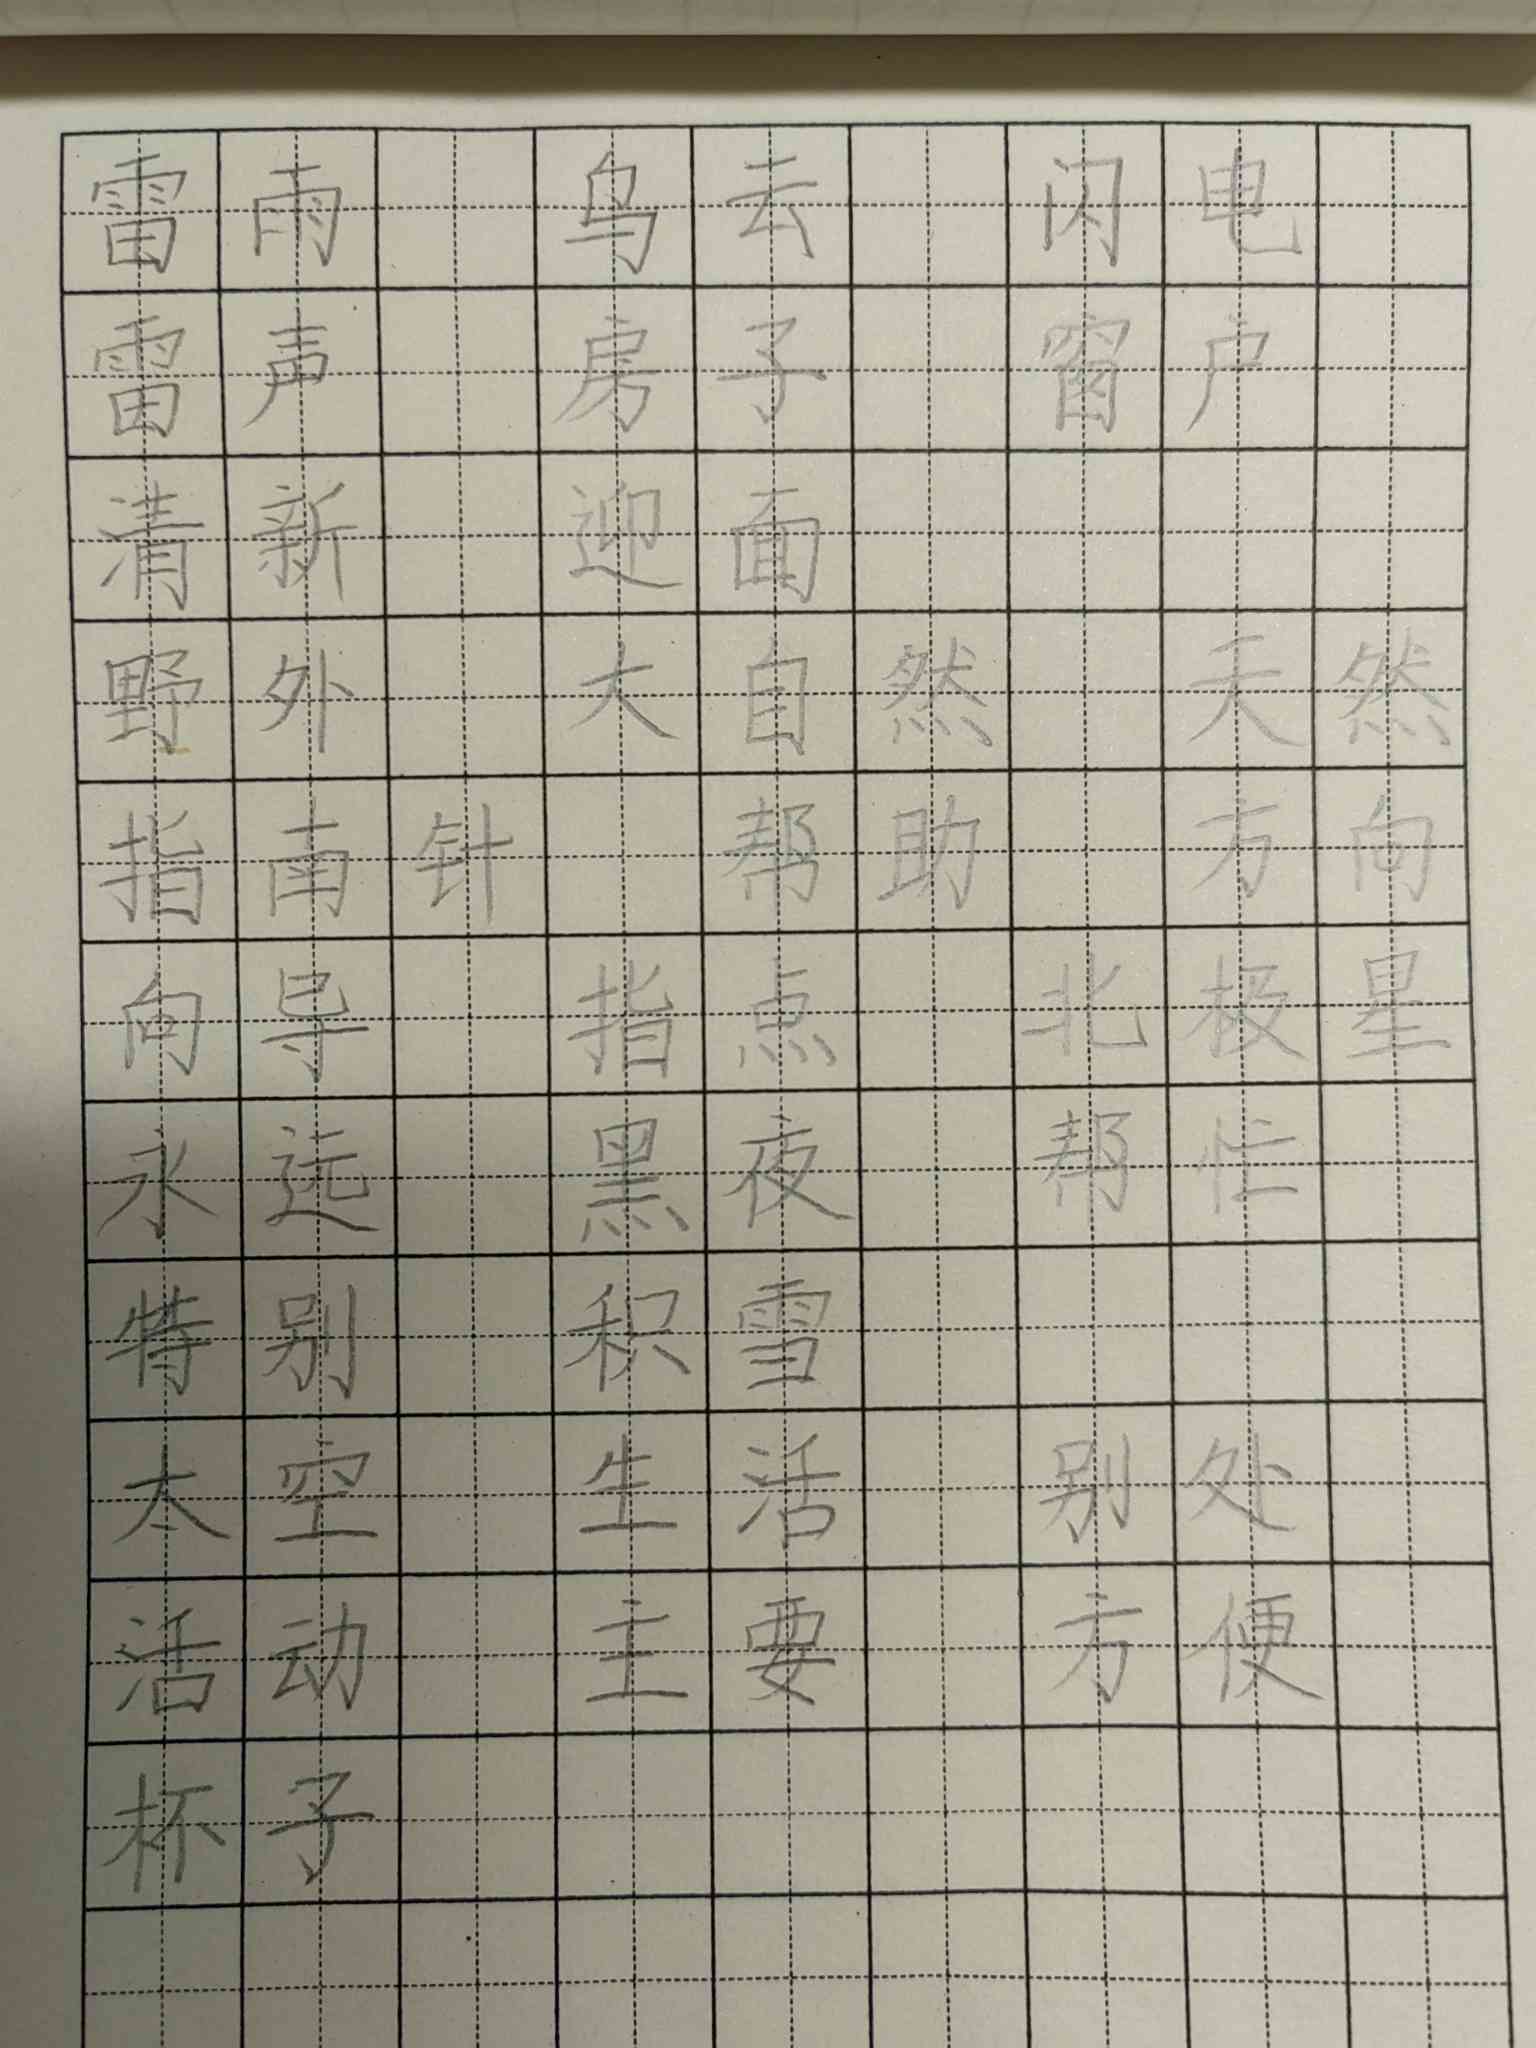 雷雨 乌云 闪电
雷声 房子 窗户
清新 迎面
野外 大自然 天然
指南针 帮助 方向
向导 指点 北极星
永远 黑夜 帮忙
特别 积雪
太空 生活 别处
活动 主要 方便
杯子